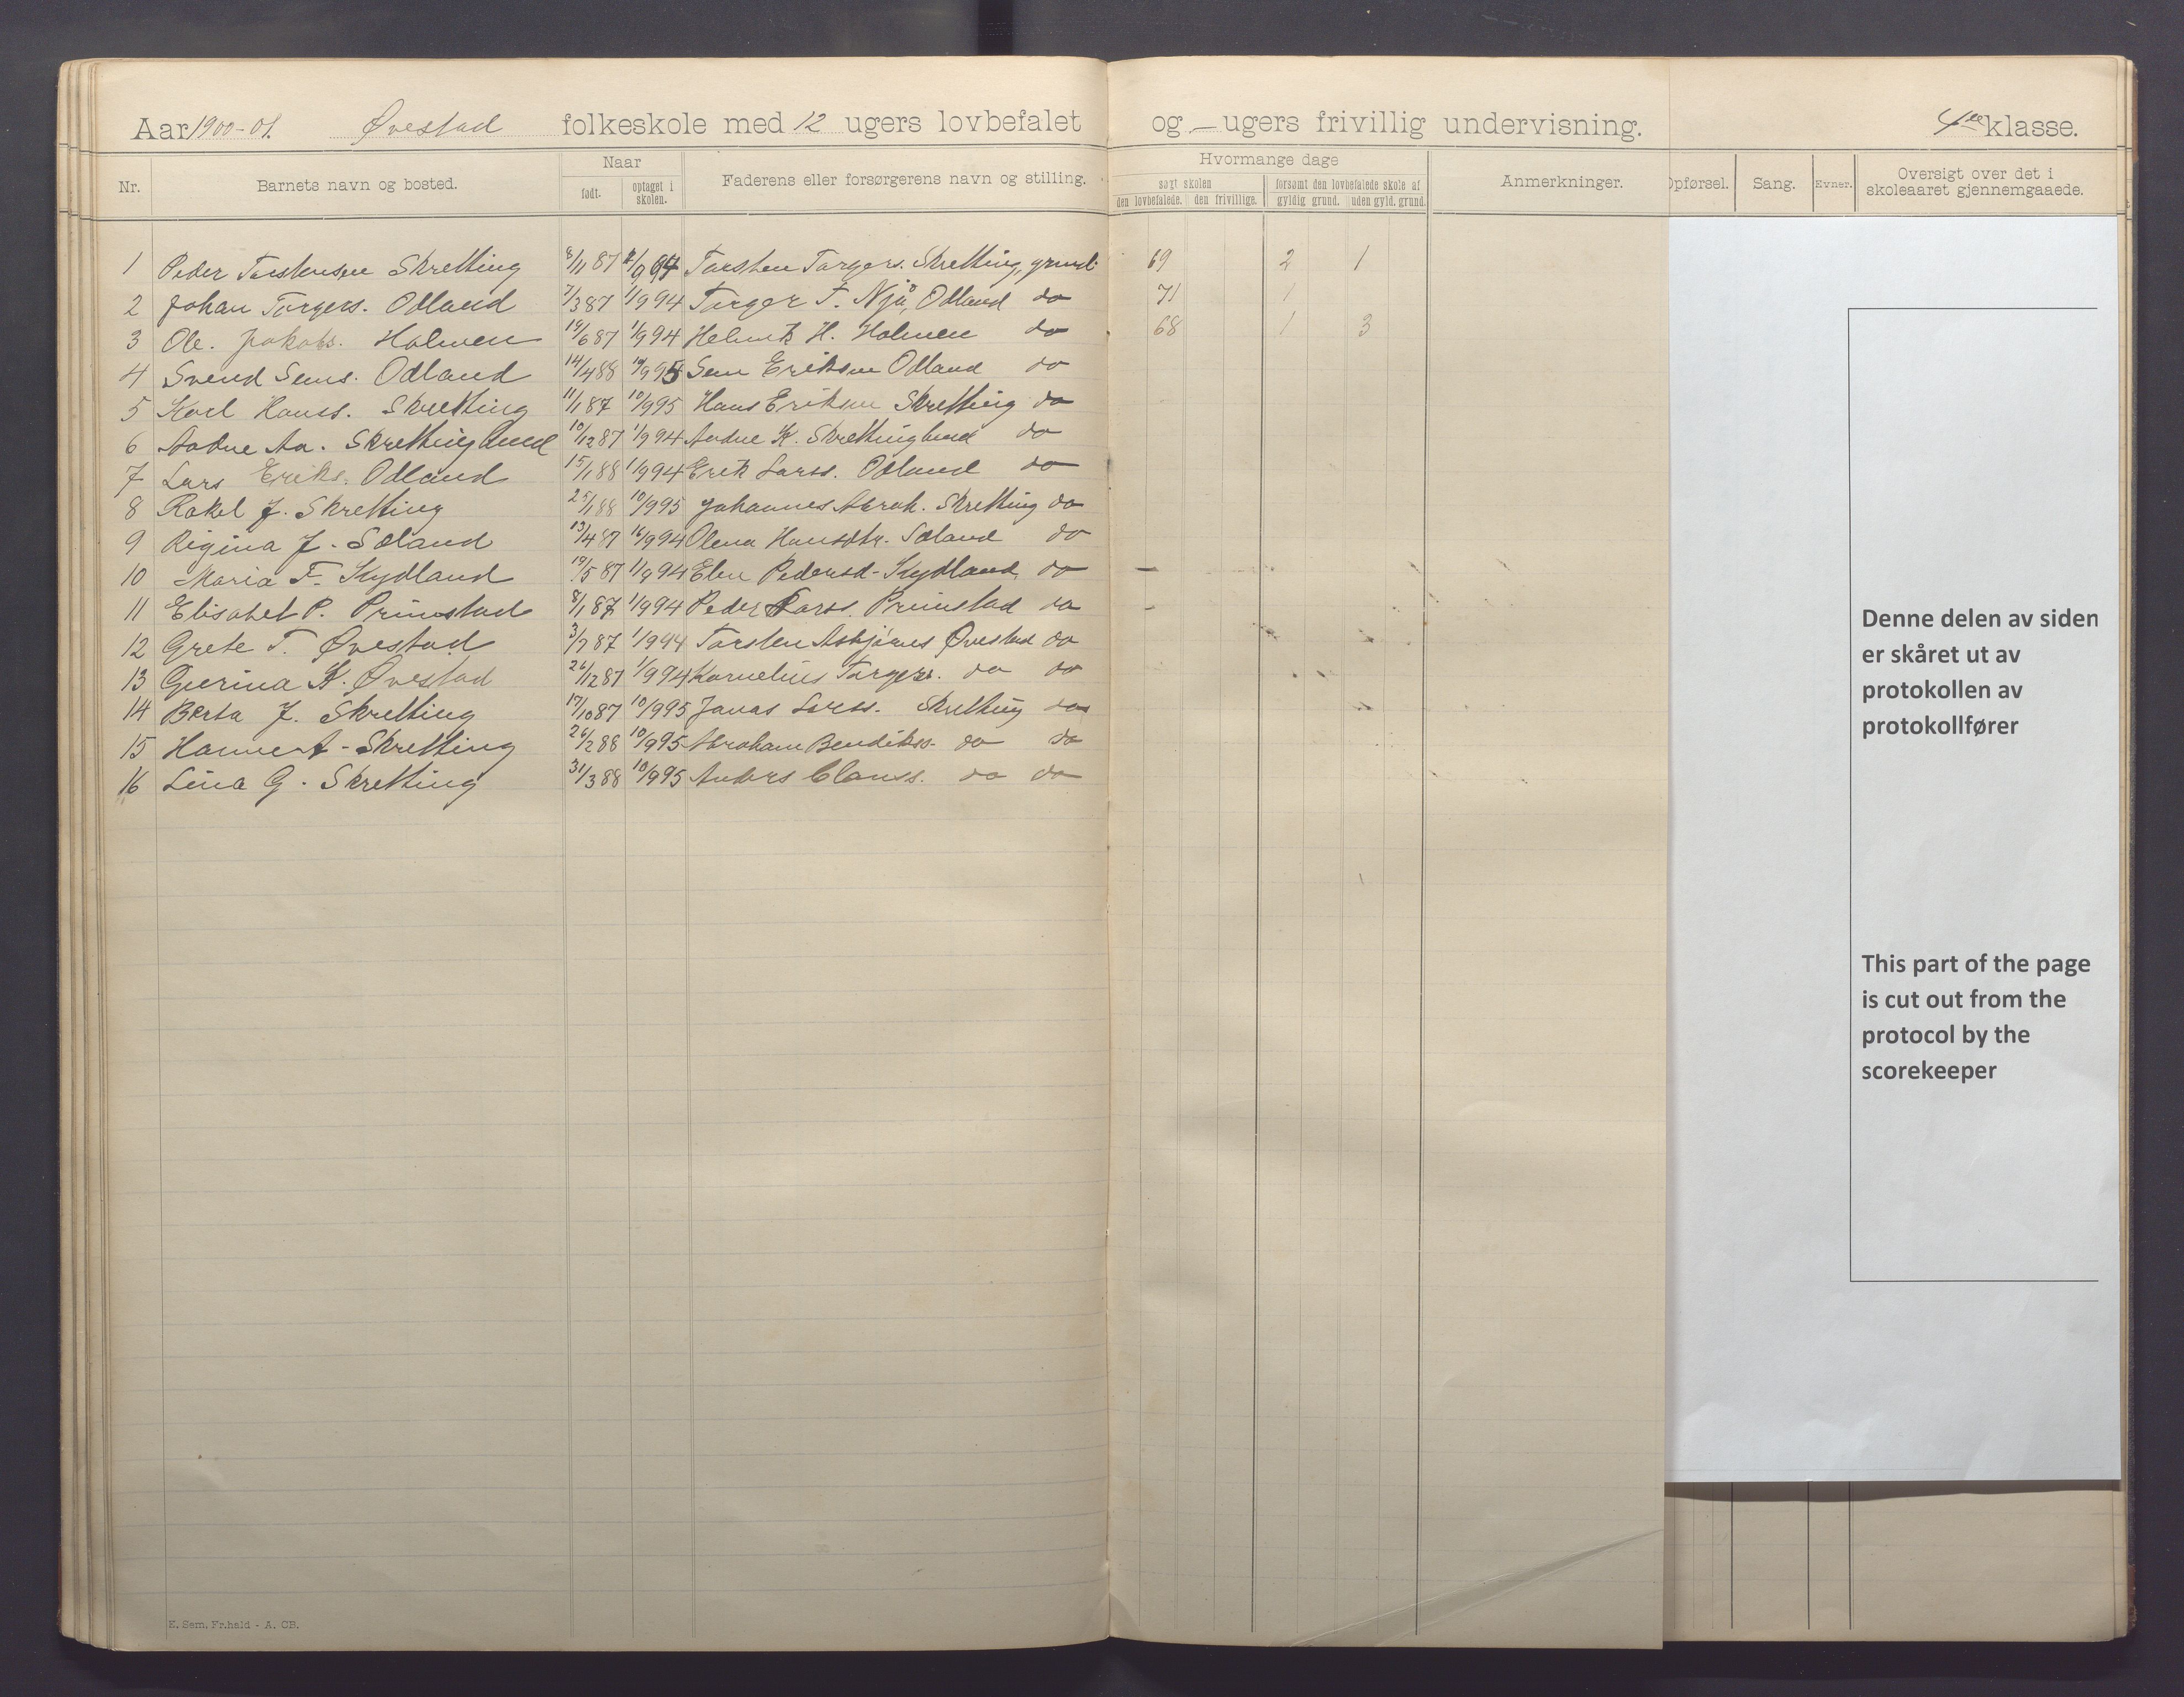 Aar 1900-01. Øvestad folkeskole med 12 ugers lovbefalet og — ugers frivillig undervisning. 4de klasse.
Nr. Barnets navn og bosted. Naar født. optaget i skolen. Faderens eller forsørgerens navn og stilling. Hvormange dage søgt skolen den lovbefalede. den frivillige. forsømt den lovbefalede skole af gyldig grund. uden gyld. grund. Anmerkninger. Opførsel. Sang. Evner. Oversigt over det i skoleaaret gjennemgaaede.
1 Peder Torstensen Skretting 6/11 87 1/9 94 Torsten Torgers. Skretting, grunds 69 2 1
2 Johan Torgers. Odland 7/3 87 1/9 94 Torger T. Njå, Odland do 71 1
3 Ole. Jakobs. Holmen 19/6 87 1/9 94 Helmik H. Holmen do 68 1 3
4 Svend Sems. Odland 14/4 88 10/9 95 Sem Eriksen Odland do
5 Karl Hanss. Skretting 11/1 87 10/9 95 Hans Eriksen Skretting do
6 Aadne Aa. Skrettinglund 10/12 87 1/9 94 Aadne K. Skrettinglund do
7 Lars Eriks. Odland 15/1 88 1/9 94 Erik Larss. Odland do
8 Rakel J. Skretting 25/1 88 10/9 95 Johannes Abrah. Skretting do
9 Regina J. Søland 13/4 87 16/9 94 Olena Hansdtr. Søland do
10 Maria F. Kydland 19/5 87 1/9 94 Elen Pedersd- Kydland do —
11 Elisabet P. Prinstad 8/1 87 1/9 94 Peder Larss. Prinstad do -
12 Grete T. Øvestad 3/7 87 1/9 94 Torsten Asbjørnes Øvestad do
13 Gurina K. Øvestad 26/12 87 1/9 94 Kornelius Torgers. do do
14 Berta J. Skretting 17/10 87 10/9 95 Jonas Larss. Skretting do
15 Hanne A - Skretting 26/2 88 10/9 95 Abraham Bendikss. do do
16 Lina G. Skretting 31/3 88 10/9 95 Anders Clauss. do do
Denne delen av siden
er skåret ut av
protokollen av
protokollfører
This part of the page
is cut out from the
protocol by the
scorekeeper
E. Sem, Fr.hald - A. CB.